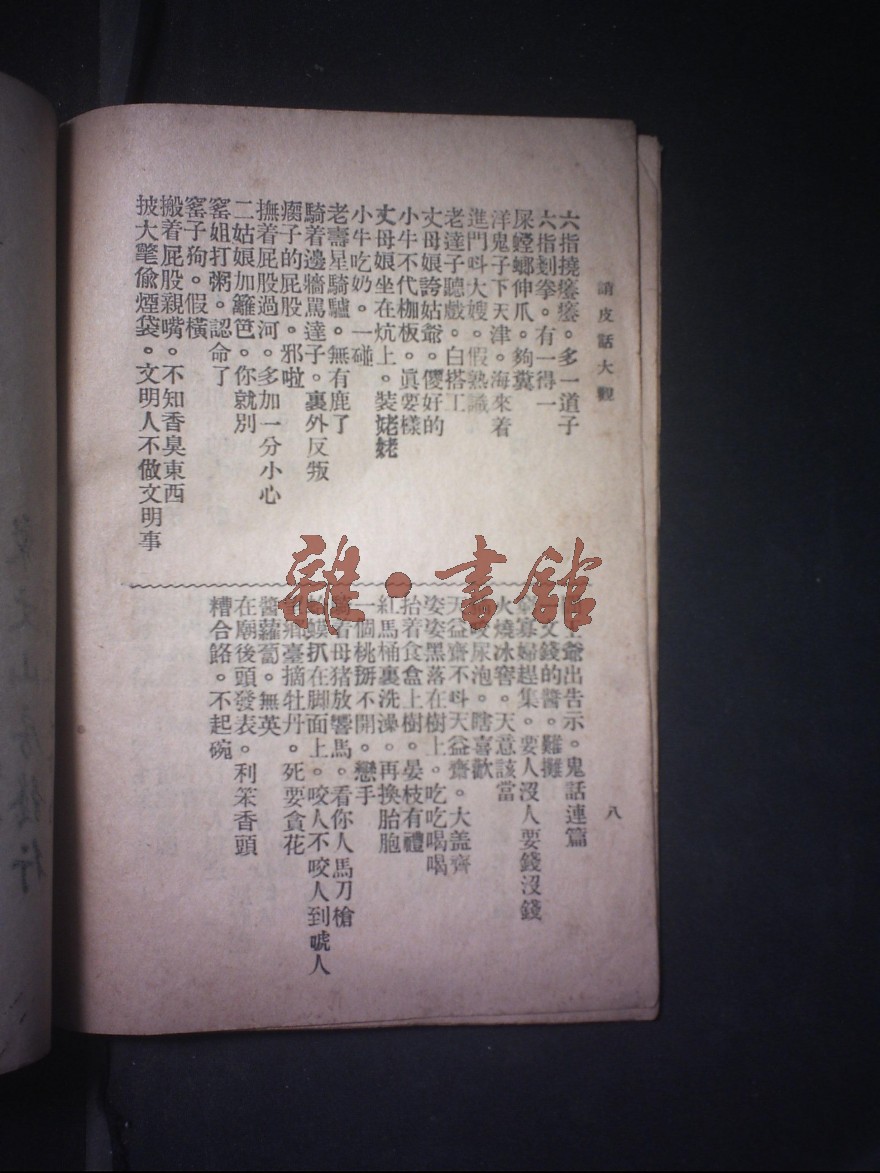 皮話大觀
六指撓癢癢。多一道子
六指剗拳。有一得一
屎蜣螂伸爪。夠糞
洋鬼子下天津。海來着
進門呌大嫂。假熟識
老達子聽戲。白搭工
丈母娘誇姑爺。儍好的
小牛不代枷板。眞要樣
丈母娘坐在炕上。裝姥姥
小牛吃奶。一碰
老壽星騎驢。無有鹿了
騎着邊牆罵達子。裏外反叛
瘸子的屁股。邪啦
撫着屁股過河。多加一分小心
二姑娘加籬笆。你就別
窰姐打粥。認命了
窰子狗。假橫
搬着屁股親嘴。不知香臭東西
披大氅偸煙袋。文明人不做文明事
爺出告示。鬼話連篇
文錢的醬。難攤
寡婦趕集。要人沒人要錢沒錢
火燒冰窖。天意該當
咬尿泡。瞎喜歡
天益齋不呌天益齋。大盖齊
姿姿黑落在樹上。吃吃喝喝
抬着食盒上樹。晏枝有禮
紅馬桶裏洗澡。再換胎胞
一個桃掰不開。戀手
着母猪放響馬。看你人馬刀槍
蟆扒在脚面上。咬人不咬人到唬人
臺摘牡丹。死要貪花
醬蘿蔔。無英
在廟後頭發表。利笨香頭
糟合餎。不起碗
八
雜·書館
行